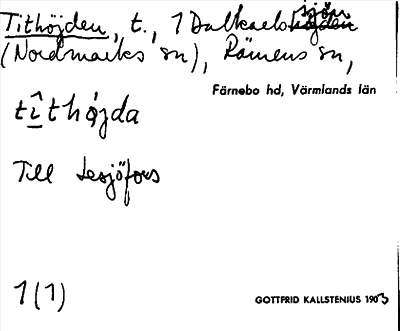 Tithöjden, t., 1 Dalkarlssjön
(Nordmarks sn), Rämens sn,
Färnebo hd, Värmlands län
tîthöjda
Till Lesjöfors
1(1)
GOTTFRID KALLSTENIUS 1903